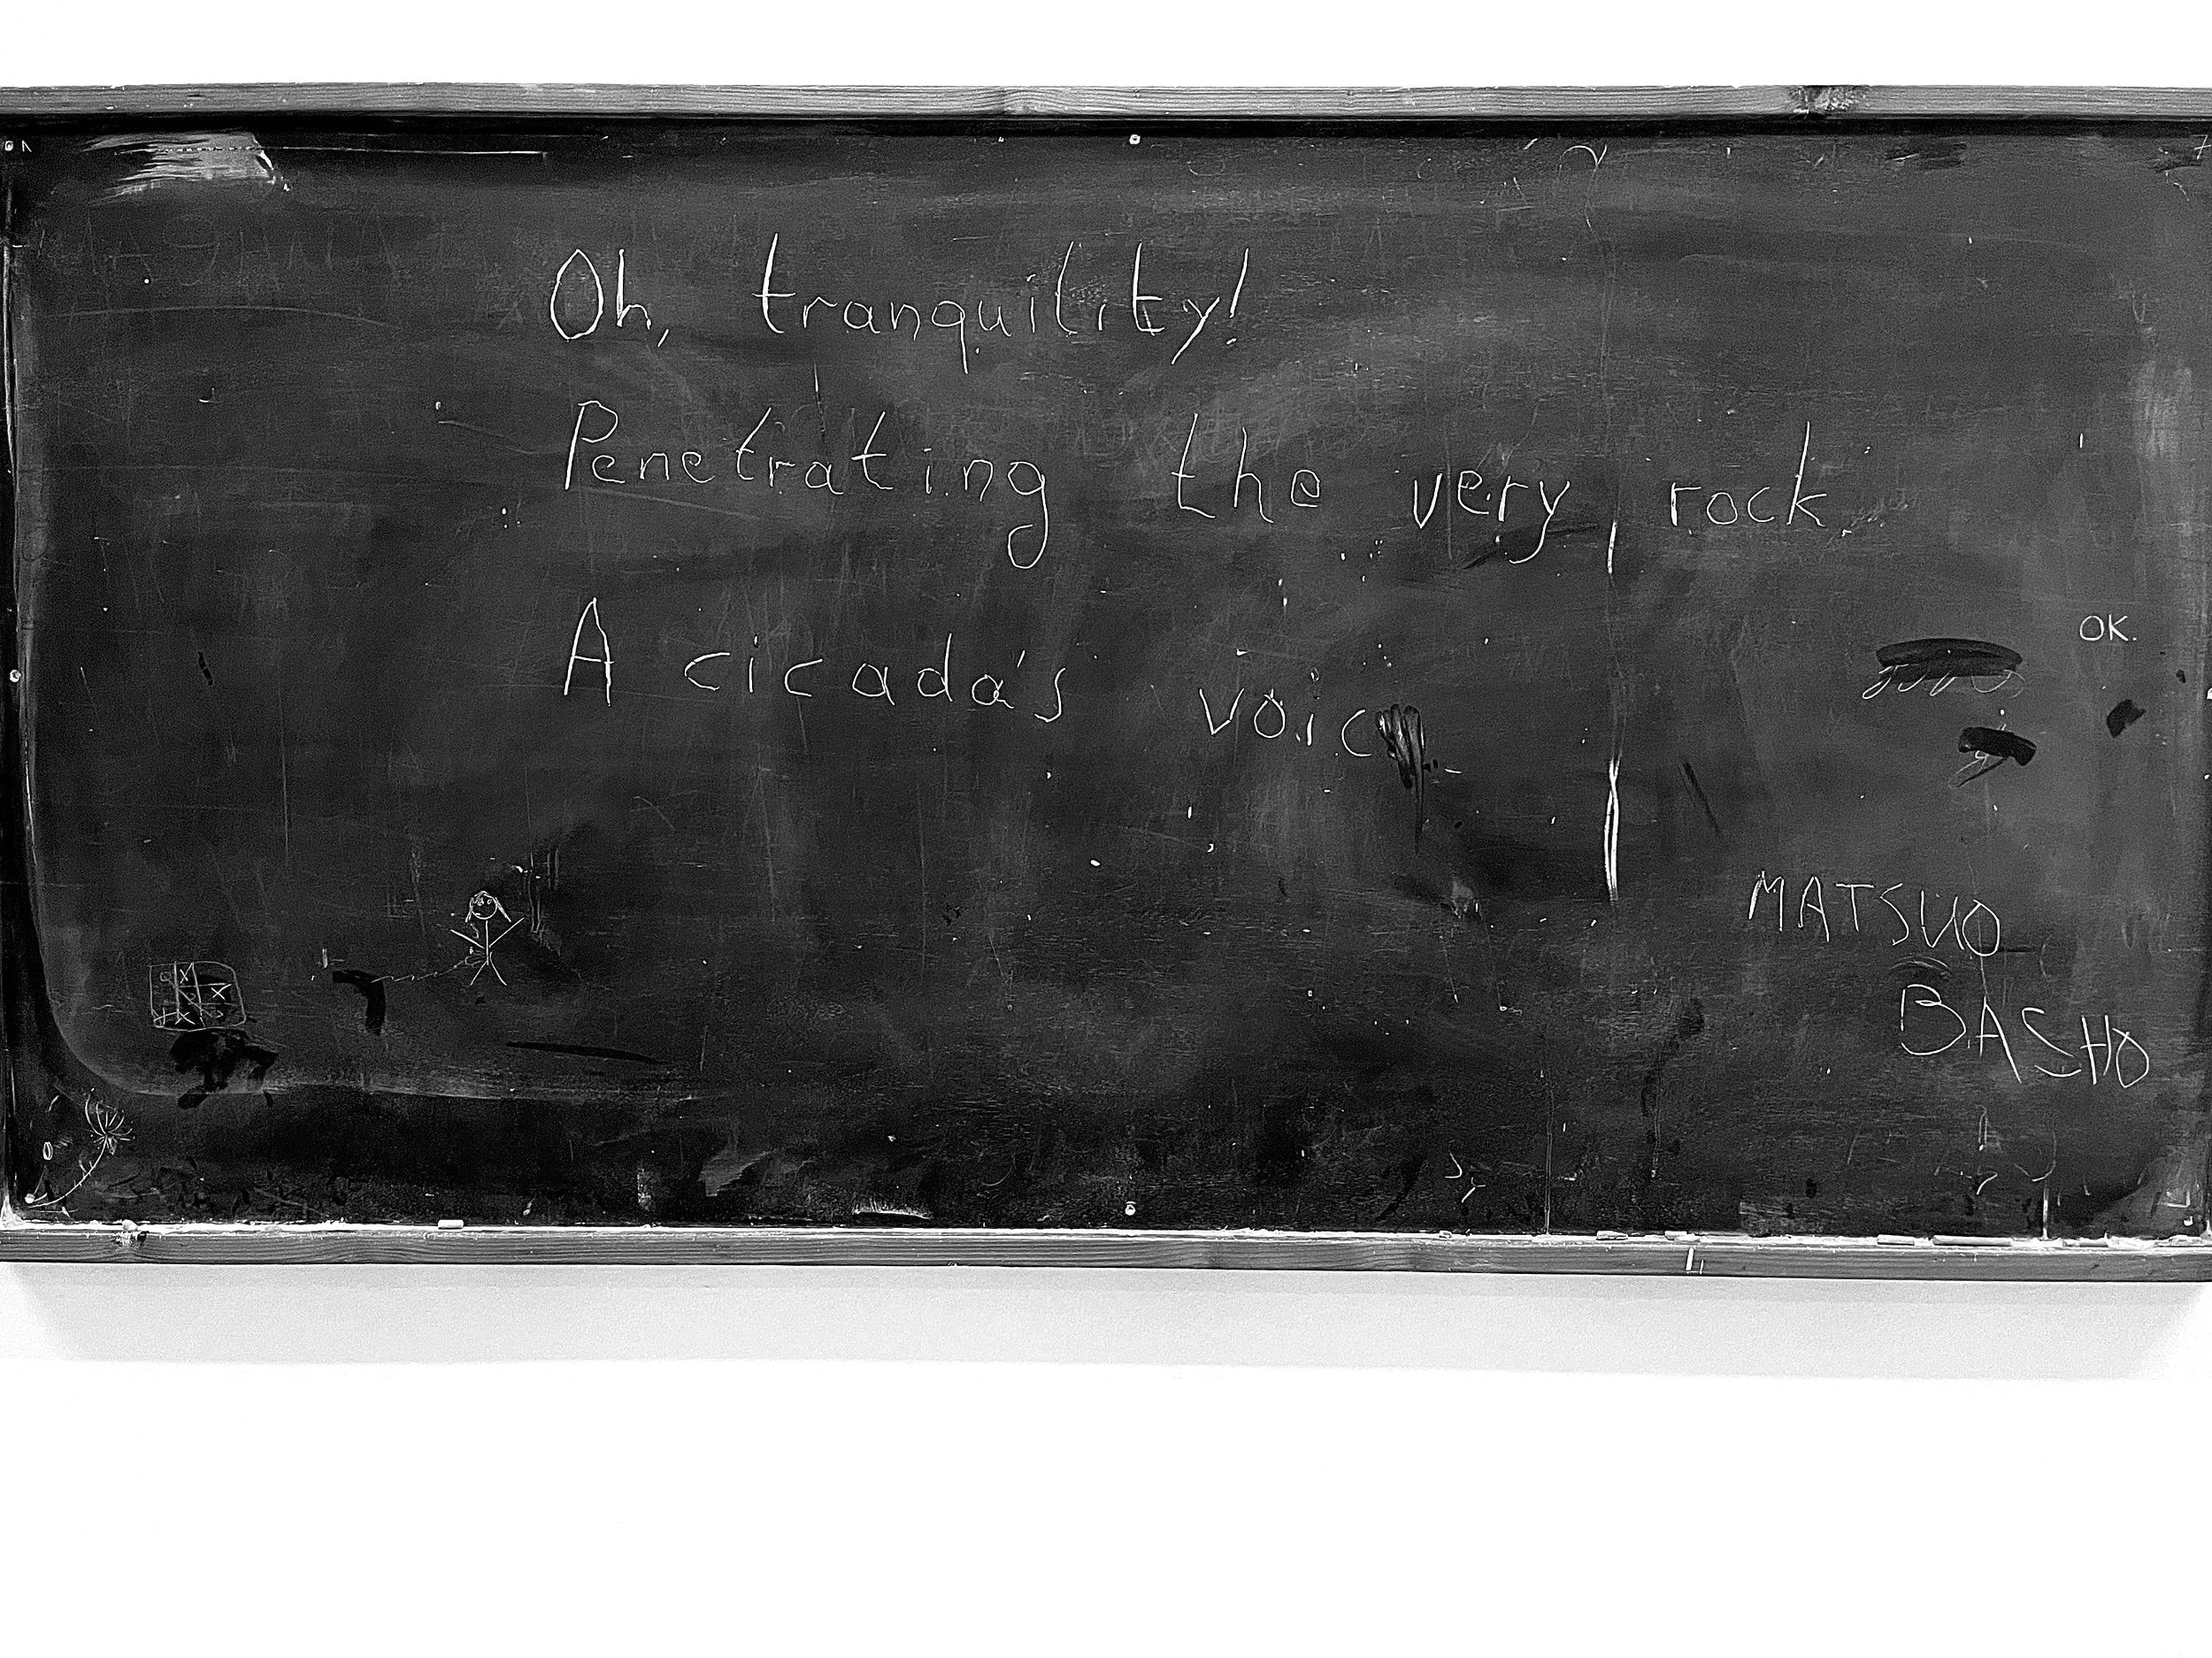 Oh, tranquility!
Penetrating the very rock,
A cicada's voic
OK.
MATSUO
BASHO